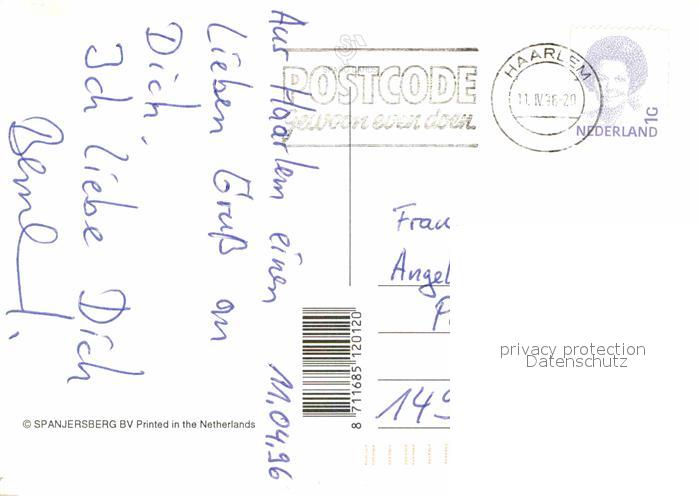 Aus Haarlem einen 11.04.96
lieben Gruß an
Dich
Ich liebe Dich
POSTCODE
gewoon even doen.
HAARLEM
11. IV. 96-20
NEDERLAND
1G
Frau
Angel
P
149
privacy protection
Datenschutz
8 711685 120120
© SPANJERSBERG BV Printed in the Netherlands